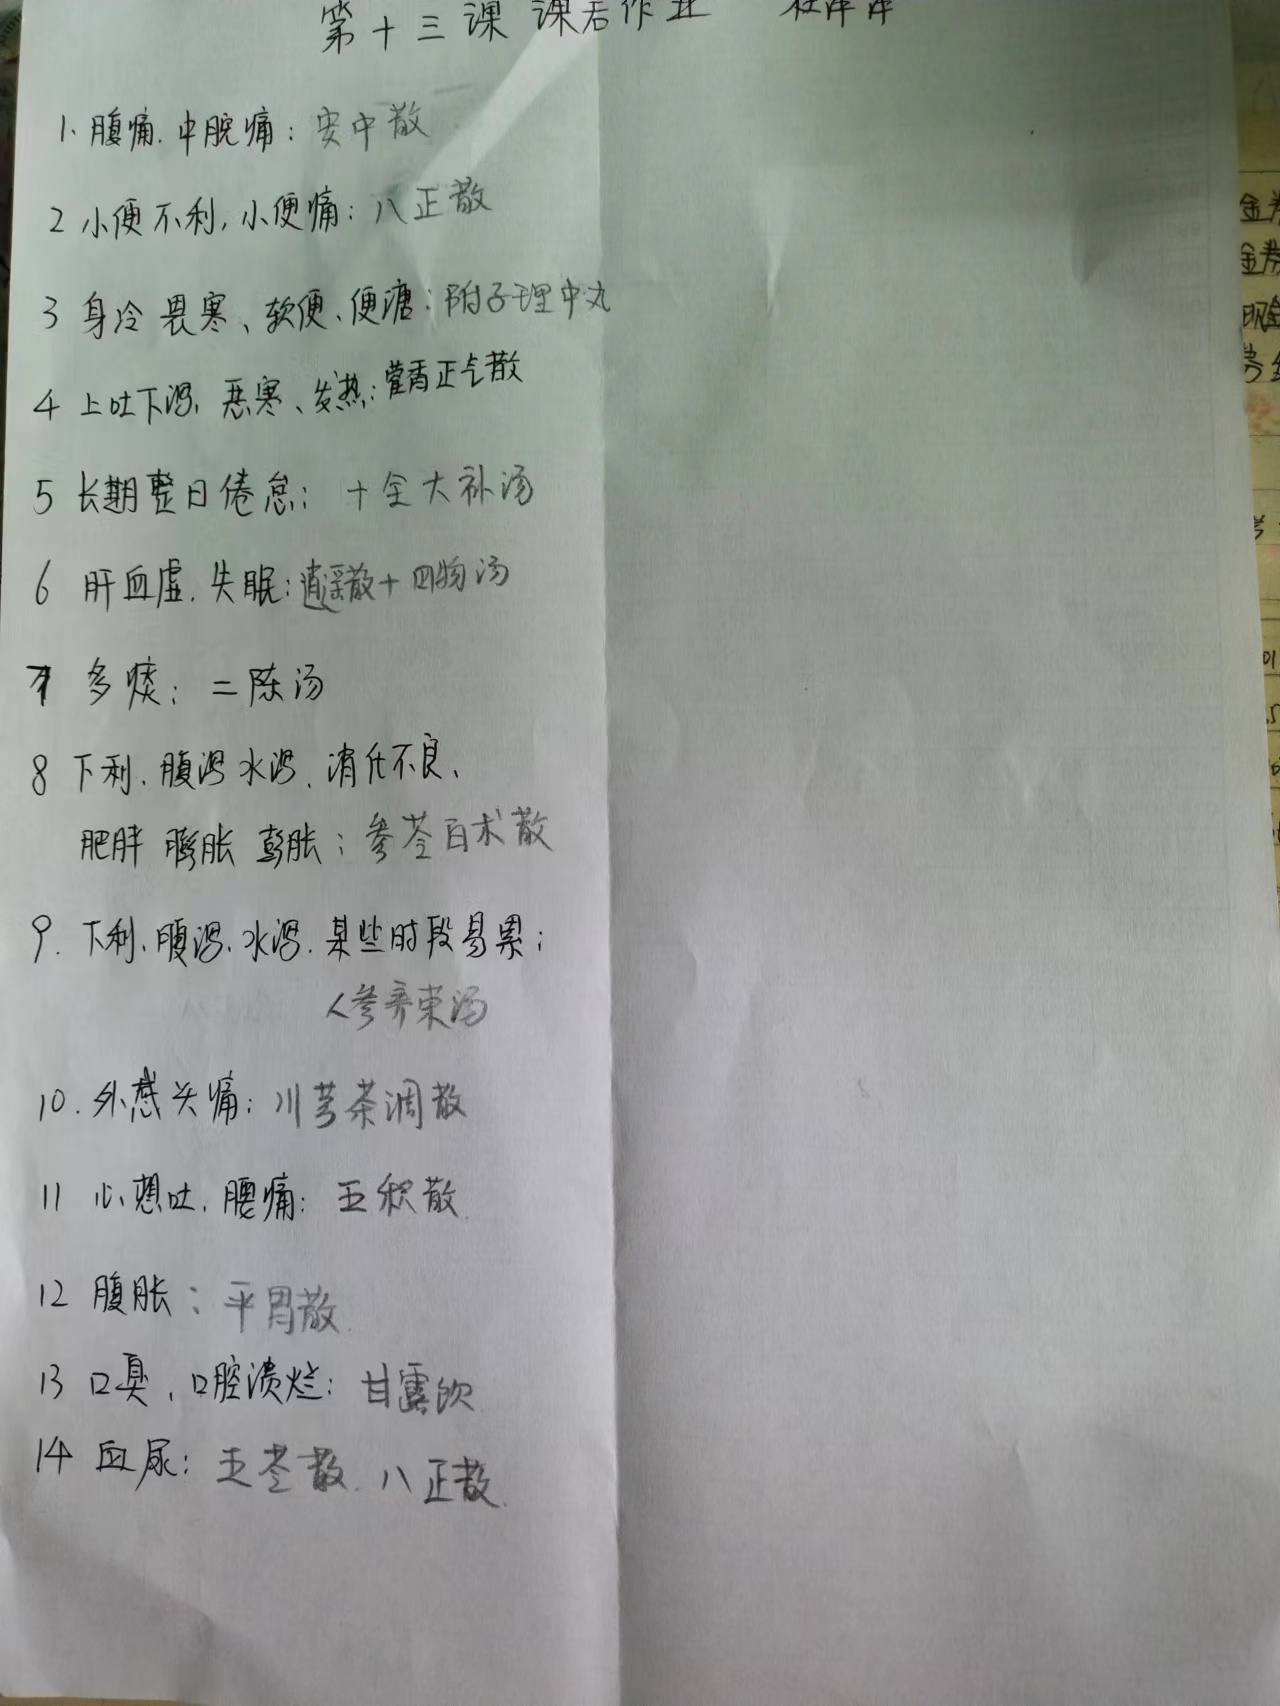 第十三课 课后作业
1. 腹痛.中脘痛：安中散
2 小便不利，小便痛：八正散
3 身冷 畏寒、软便、便溏：附子理中丸
4 上吐下泻，恶寒、发热：藿香正气散
5 长期整日倦怠：十全大补汤
6 肝血虚.失眠：逍遥散十四物汤
7 多痰：二陈汤
8 下利.腹泻 水泻.消化不良、
肥胖 膨胀 鼓胀：参苓白术散
9. 下利.腹泻.水泻.某些时段易累：
人参养荣汤
10. 外感头痛：川芎茶调散
11 心想吐.腰痛：五积散
12 腹胀：平胃散
13 口臭，口腔溃烂：甘露饮
14 血尿：五苓散.八正散.
金
金